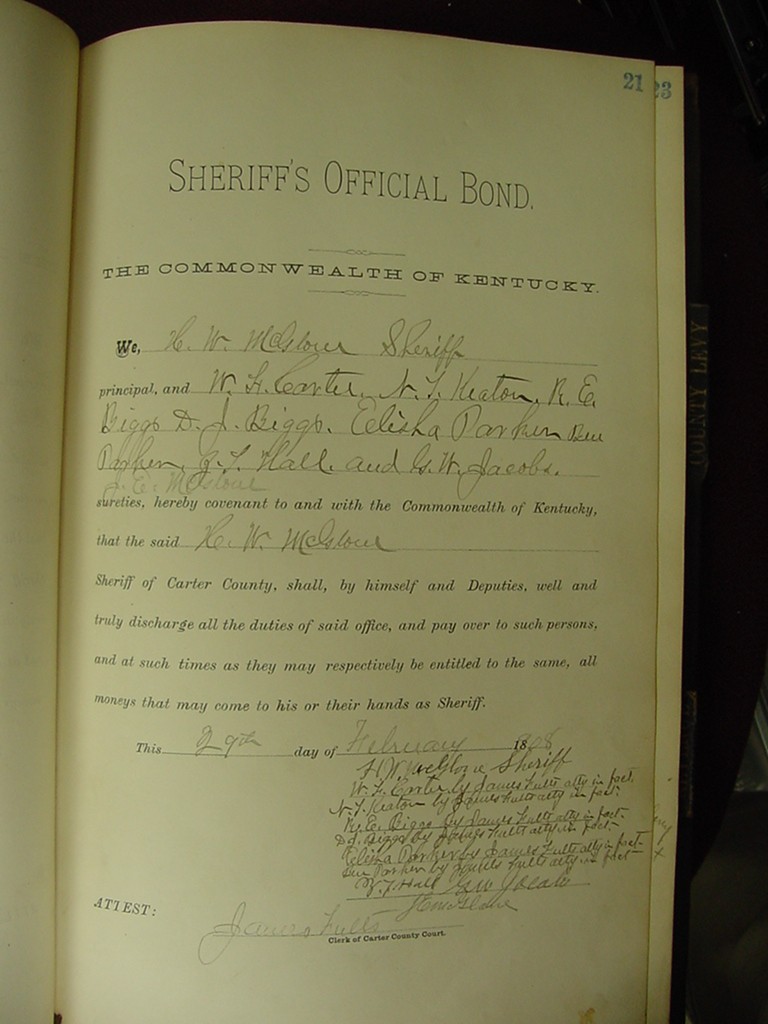 21
23
SHERIFF'S OFFICIAL BOND.
THE COMMONWEALTH OF KENTUCKY.
We, H. W. McGlone Sheriff
principal, and W. H. Carter, N. T. Keaton, R. E.
Biggs D. J. Biggs, Elisha Parker Ben
Parker, Hall and G. W. Jacobs.
J. E. McGlone
sureties, hereby covenant to and with the Commonwealth of Kentucky,
that the said H. W. McGlone
Sheriff of Carter County, shall, by himself and Deputies, well and
truly discharge all the duties of said office, and pay over to such persons,
and at such times as they may respectively be entitled to the same, all
moneys that may come to his or their hands as Sheriff.
This 29th day of February 18
H. W. McGlone Sheriff
Carter by James Fults atty in fact.
N. T. Keaton by James Fults atty in fact.
R. E. Biggs by James Fults atty in fact.
D. J. Biggs by James Fults atty in fact.
Elisha Parker by James Fults atty in fact
Ben Parker by James Fults atty in fact
Hall G W Jacobs
J E McGlone
ATTEST:
James Fults
Clerk of Carter County Court.
COUNTY LEVY